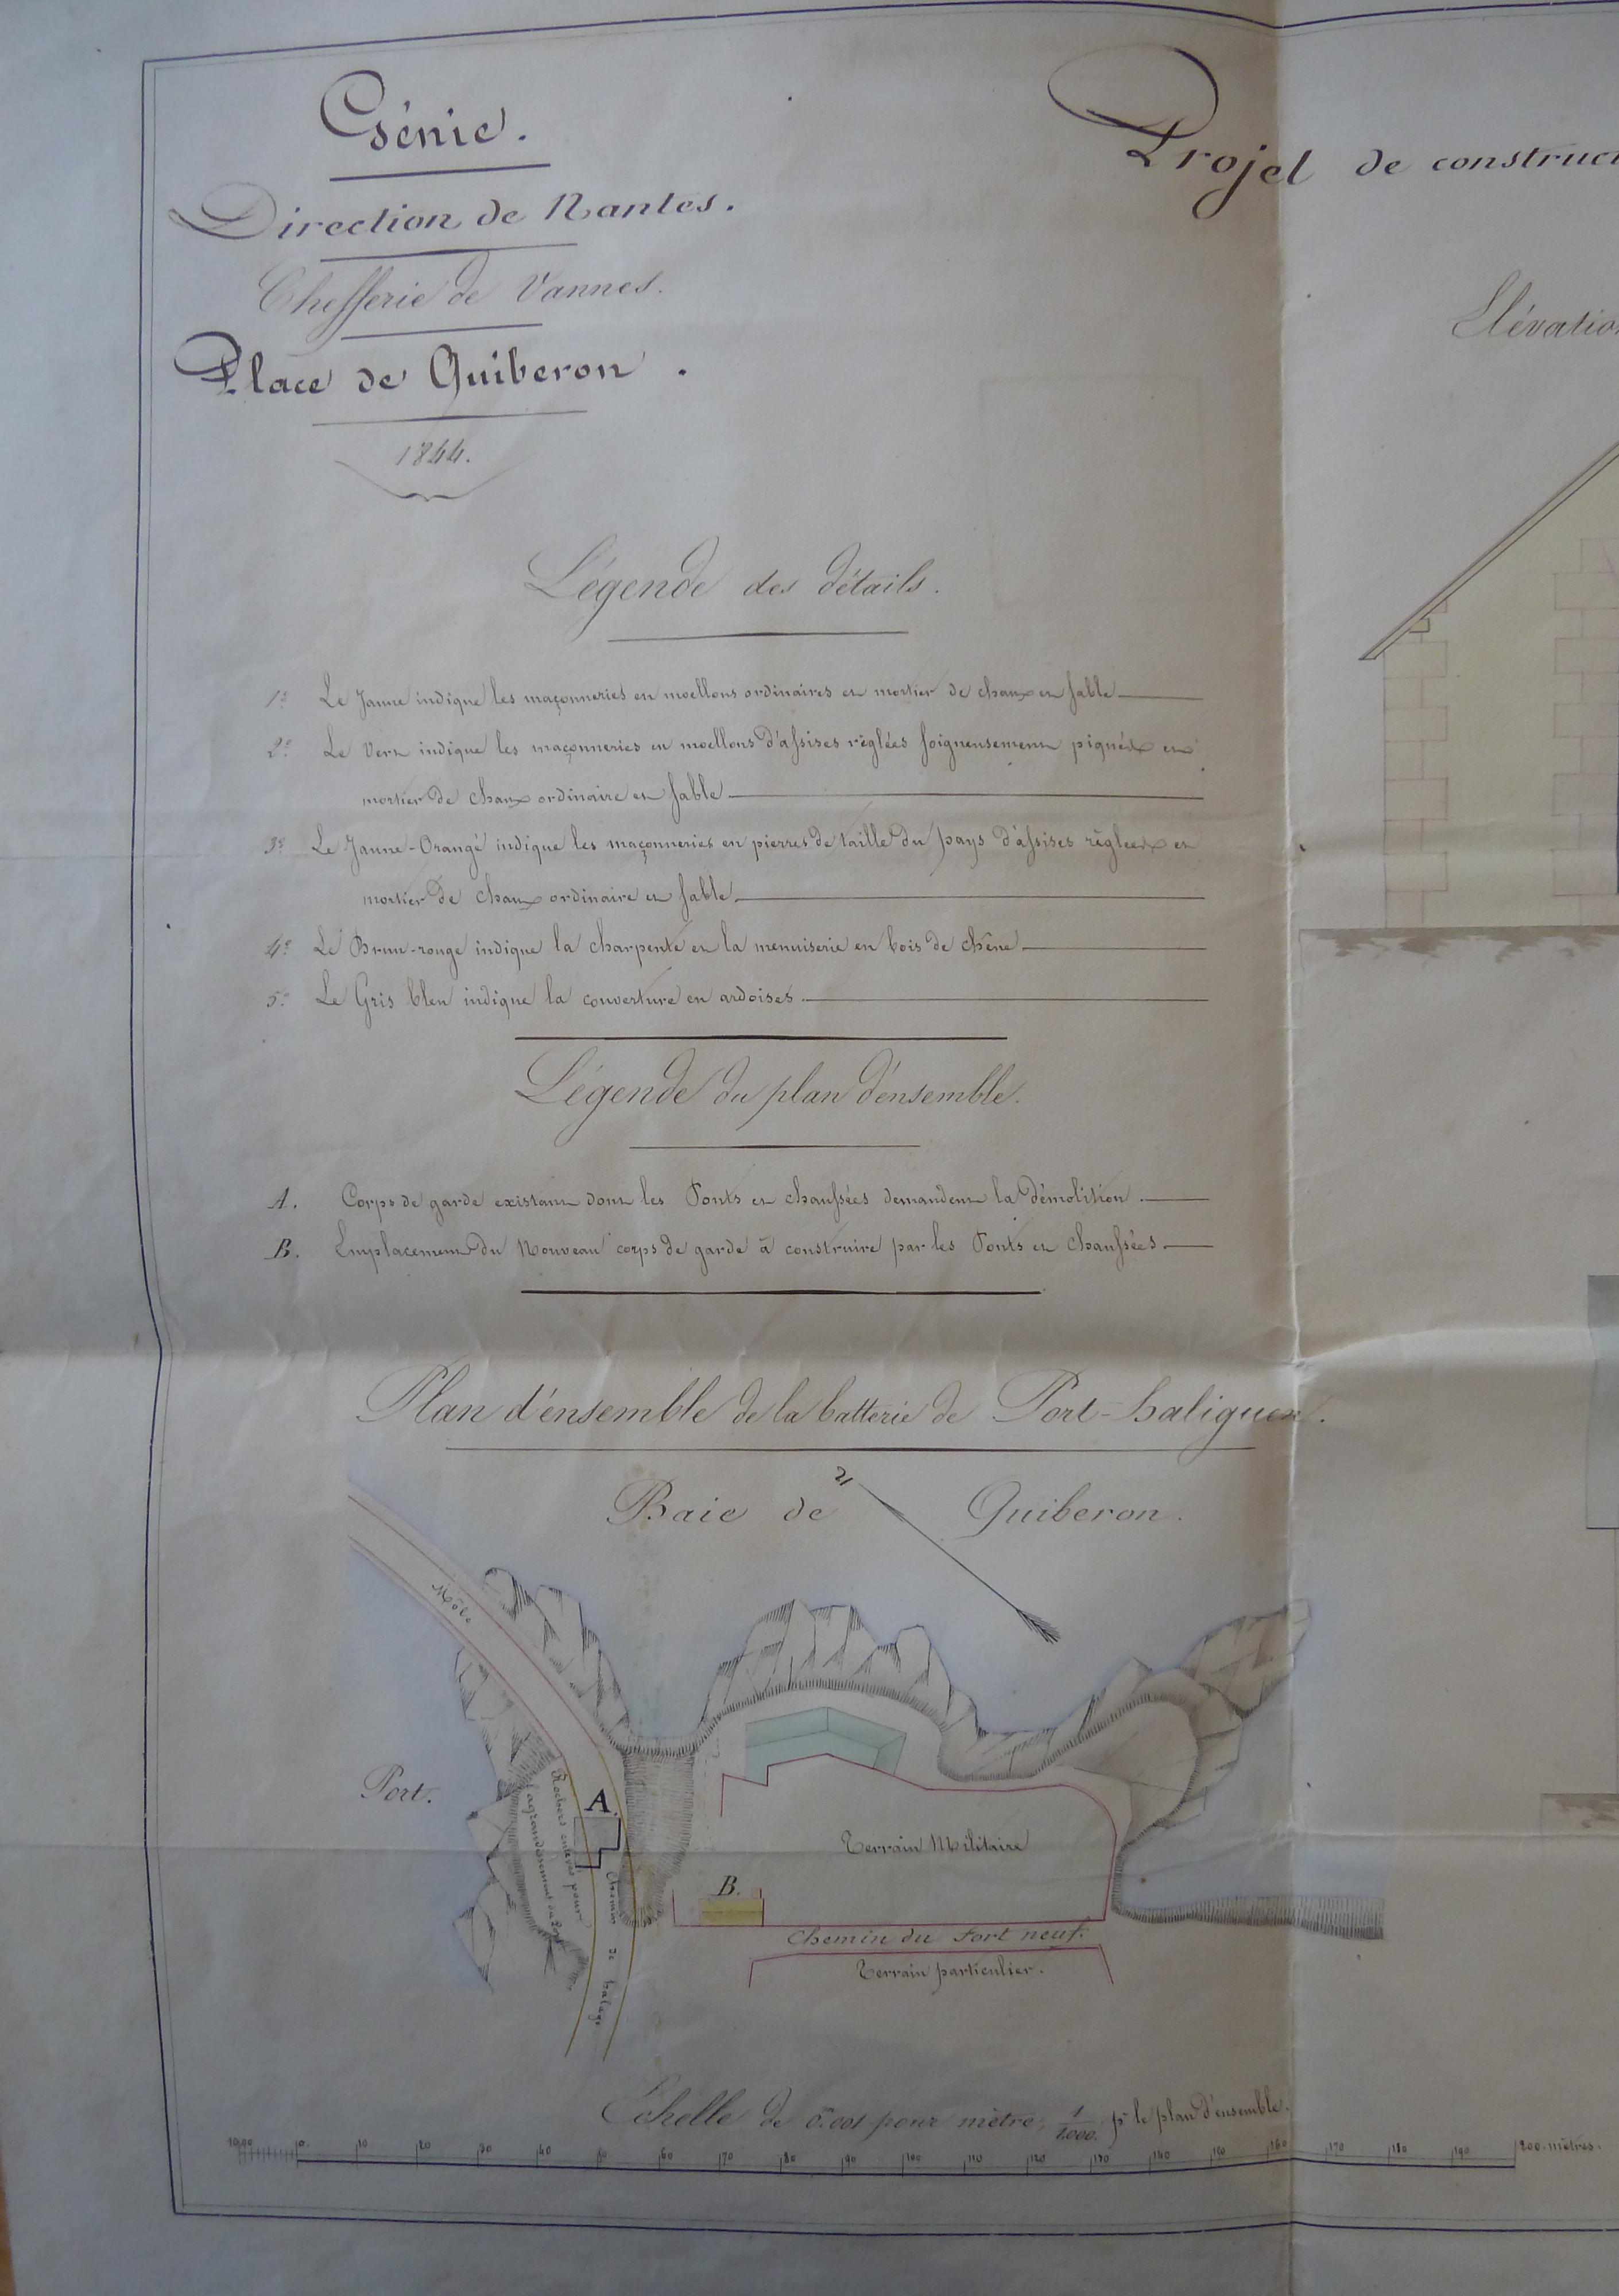 Génie.
Direction de Nantes.
Chefferie de Vannes.
Place de Quiberon.
1844.
Projet de construct
Élévatio
Légende des détails.
1º Le Jaune indique les maçonneries en moellons ordinaires et mortier de chaux et sable
2º Le Vert indique les maçonneries en moellons d'assises réglées soigneusement piquées et
mortier de chaux ordinaire et sable
3º Le Jaune-Orangé indique les maçonneries en pierres de taille du pays d'assises réglées et
mortier de chaux ordinaire et sable.
4º Le Brun-rouge indique la charpente et la menuiserie en bois de chêne
5º Le Gris bleu indique la couverture en ardoises.
Légende du plan d'ensemble.
A. Corps de garde existant dont les Ponts et chaussées demandent la démolition.
B. Emplacement du Nouveau corps de garde à construire par les Ponts et Chaussées.
Plan d'ensemble de la batterie de Port-haliguen.
Baie de Quiberon.
Môle
Port.
A.
Rochers enlevés pour
l'agrandissement du Port
Chemin de halage
Terrain Militaire
B.
Chemin du Fort neuf.
Terrain particulier.
Échelle de 0.001 pour mètre, 1/1000. pr le plan d'ensemble.
0. 10 20 30 40 50 60 70 80 90 100 110 120 130 140 150 160 170 180 190 200 mètres.